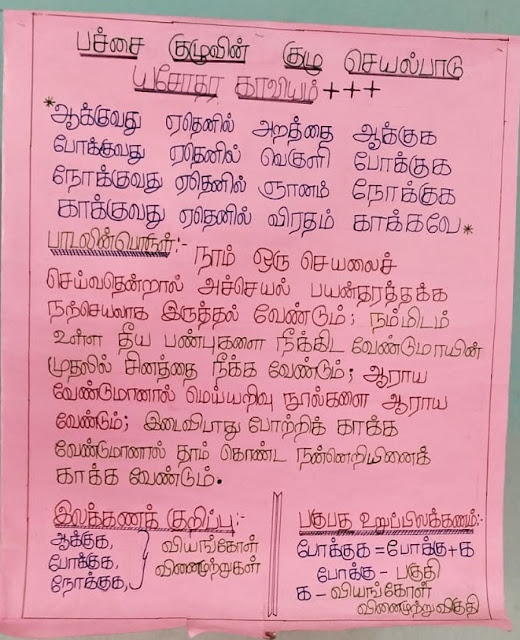 பச்சை குழுவின் குழு செயல்பாடு
யசோதர காவியம்+++
*ஆக்குவது ஏதெனில் அறத்தை ஆக்குக
போக்குவது ஏதெனில் வெகுளி போக்குக
நோக்குவது ஏதெனில் ஞானம் நோக்குக
காக்குவது ஏதெனில் விரதம் காக்கவே*
பாடலின்பொருள்:- நாம் ஒரு செயலைச்
செய்வதென்றால் அச்செயல் பயன்தரத்தக்க
நற்செயலாக இருத்தல் வேண்டும்; நம்மிடம்
உள்ள தீய பண்புகளை நீக்கிட வேண்டுமாயின்
முதலில் சினத்தை நீக்க வேண்டும்; ஆராய
வேண்டுமானால் மெய்யறிவு நூல்களை ஆராய
வேண்டும்; இடைவிடாது போற்றிக் காக்க
வேண்டுமானால் தாம் கொண்ட நன்னெறியினைக்
காக்க வேண்டும்.
இலக்கணக் குறிப்பு:-
ஆக்குக,
போக்குக,
நோக்குக,
வியங்கோள்
வினைமுற்றுகள்
பகுபத உறுப்பிலக்கணம்:-
போக்குக=போக்கு+க
போக்கு - பகுதி
க - வியங்கோள்
வினைமுற்று விகுதி